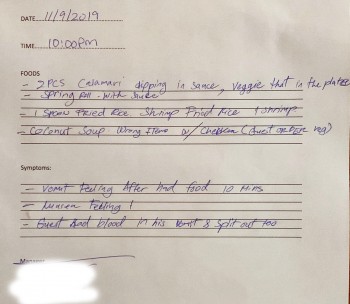 DATE 11/9/2019
TIME 10:00pm
FOODS
- 2 PCS Calamari dipping in sauce, veggie that in the plate
- Spring Roll - with sauce
- 1 Spoon Fried Rice Shrimp Fried Rice 1 shrimp
- Coconut Soup Wrong Item w/ Chekken (Guest order veg)
Symptoms:
- Vomit feeling After had food 10 mins
- feeling !
- Guest had blood in his vomit & split out too